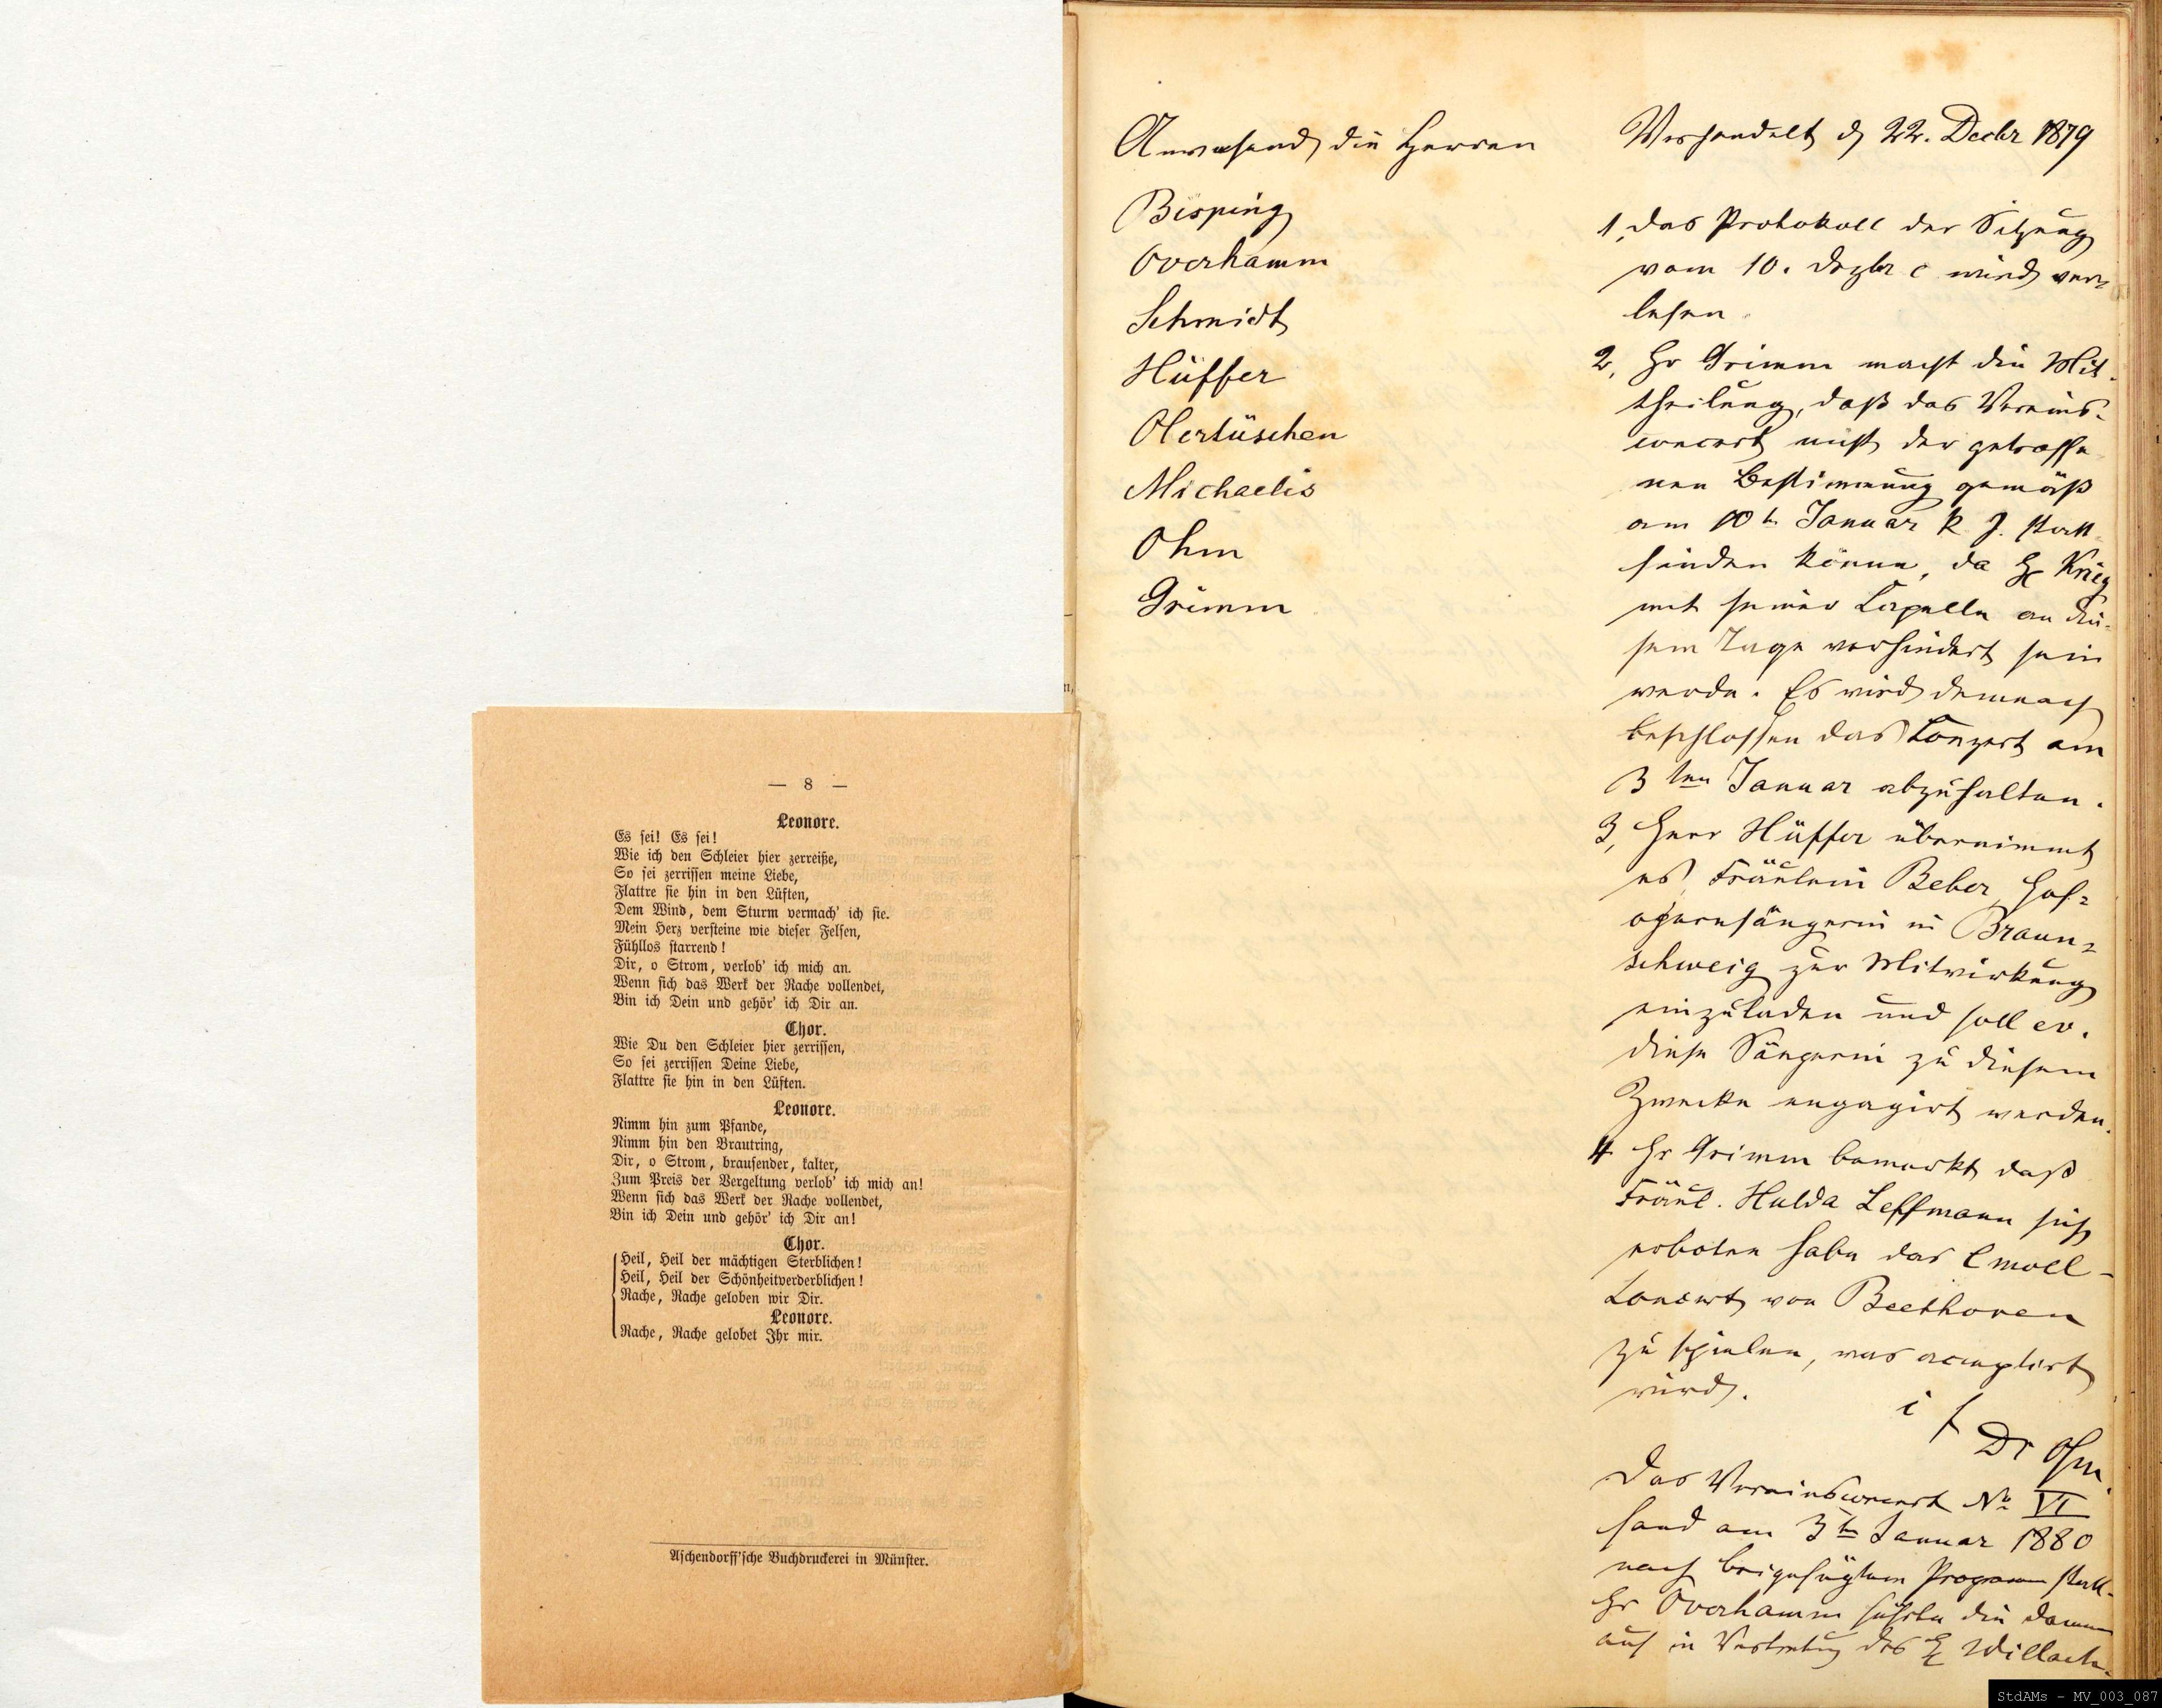 — 8 —
Leonore.
Es sei! Es sei!
Wie ich den Schleier hier zerreiße,
So sei zerrissen meine Liebe,
Flattre sie hin in den Lüften,
Dem Wind, dem Sturm vermach' ich sie.
Mein Herz versteine wie dieser Felsen,
Fühllos starrend!
Dir, o Strom, verlob' ich mich an.
Wenn sich das Werk der Rache vollendet,
Bin ich Dein und gehör' ich Dir an.
Chor.
Wie Du den Schleier hier zerrissen,
So sei zerrissen Deine Liebe,
Flattre sie hin in den Lüften.
Leonore.
Nimm hin zum Pfande,
Nimm hin den Brautring,
Dir, o Strom, brausender, kalter,
Zum Preis der Vergeltung verlob' ich mich an!
Wenn sich das Werk der Rache vollendet,
Bin ich Dein und gehör' ich Dir an!
Chor.
Heil, Heil der mächtigen Sterblichen!
Heil, Heil der Schönheitverderblichen!
Rache, Rache geloben wir Dir.
Leonore.
Rache, Rache gelobet Ihr mir.
Aschendorff'sche Buchdruckerei in Münster.
Anwesend die Herren
Bisping
Overhamm
Schmidt
Hüffer
Olertüschen
Michaelis
Ohm
Grimm
Verhandelt d 22. Decbr 1879
1, das Protokoll der Sitzung
vom 10. Dezbr c wird ver=
lesen
2, Hr Grimm macht die Mit-
theilung, daß das Vereins-
concert nicht der getroffe
nen Bestimmung gemäß
am 10t Januar k J. statt
finden könne, da H Krieg
mit seiner Capelle an die-
sem Tage verhindert sein
werde. Es wird demnach
beschlossen das Conzert am
3ten Januar abzuhalten.
3, Herr Hüffer übernimmt
es, Fräulein Beber, Hof=
opernsängerin in Braun=
schweig zur Mitwirkung
einzuladen und soll ev.
diese Sängerin zu diesem
Zwecke engagirt werden.
4 Hr Grimm bemerkt daß
Fräul. Hulda Leffmann sich
erboten habe das C moll-
Concert von Beethoven
zu spielen, was acceptirt
wird.
i f
Dr Ohm.
Das Vereinsconcert No VI
fand am 3t Januar 1880
nach beigefügtem Programm statt-
Hr Overhamm führte die Damen
auf in Vertretung des H Willach.